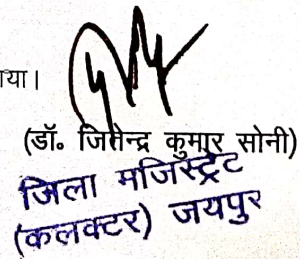 याया।
(डॉ. जितेन्द्र कुमार सोनी)
जिला मजिस्ट्रेट
(कलक्टर) जयपुर